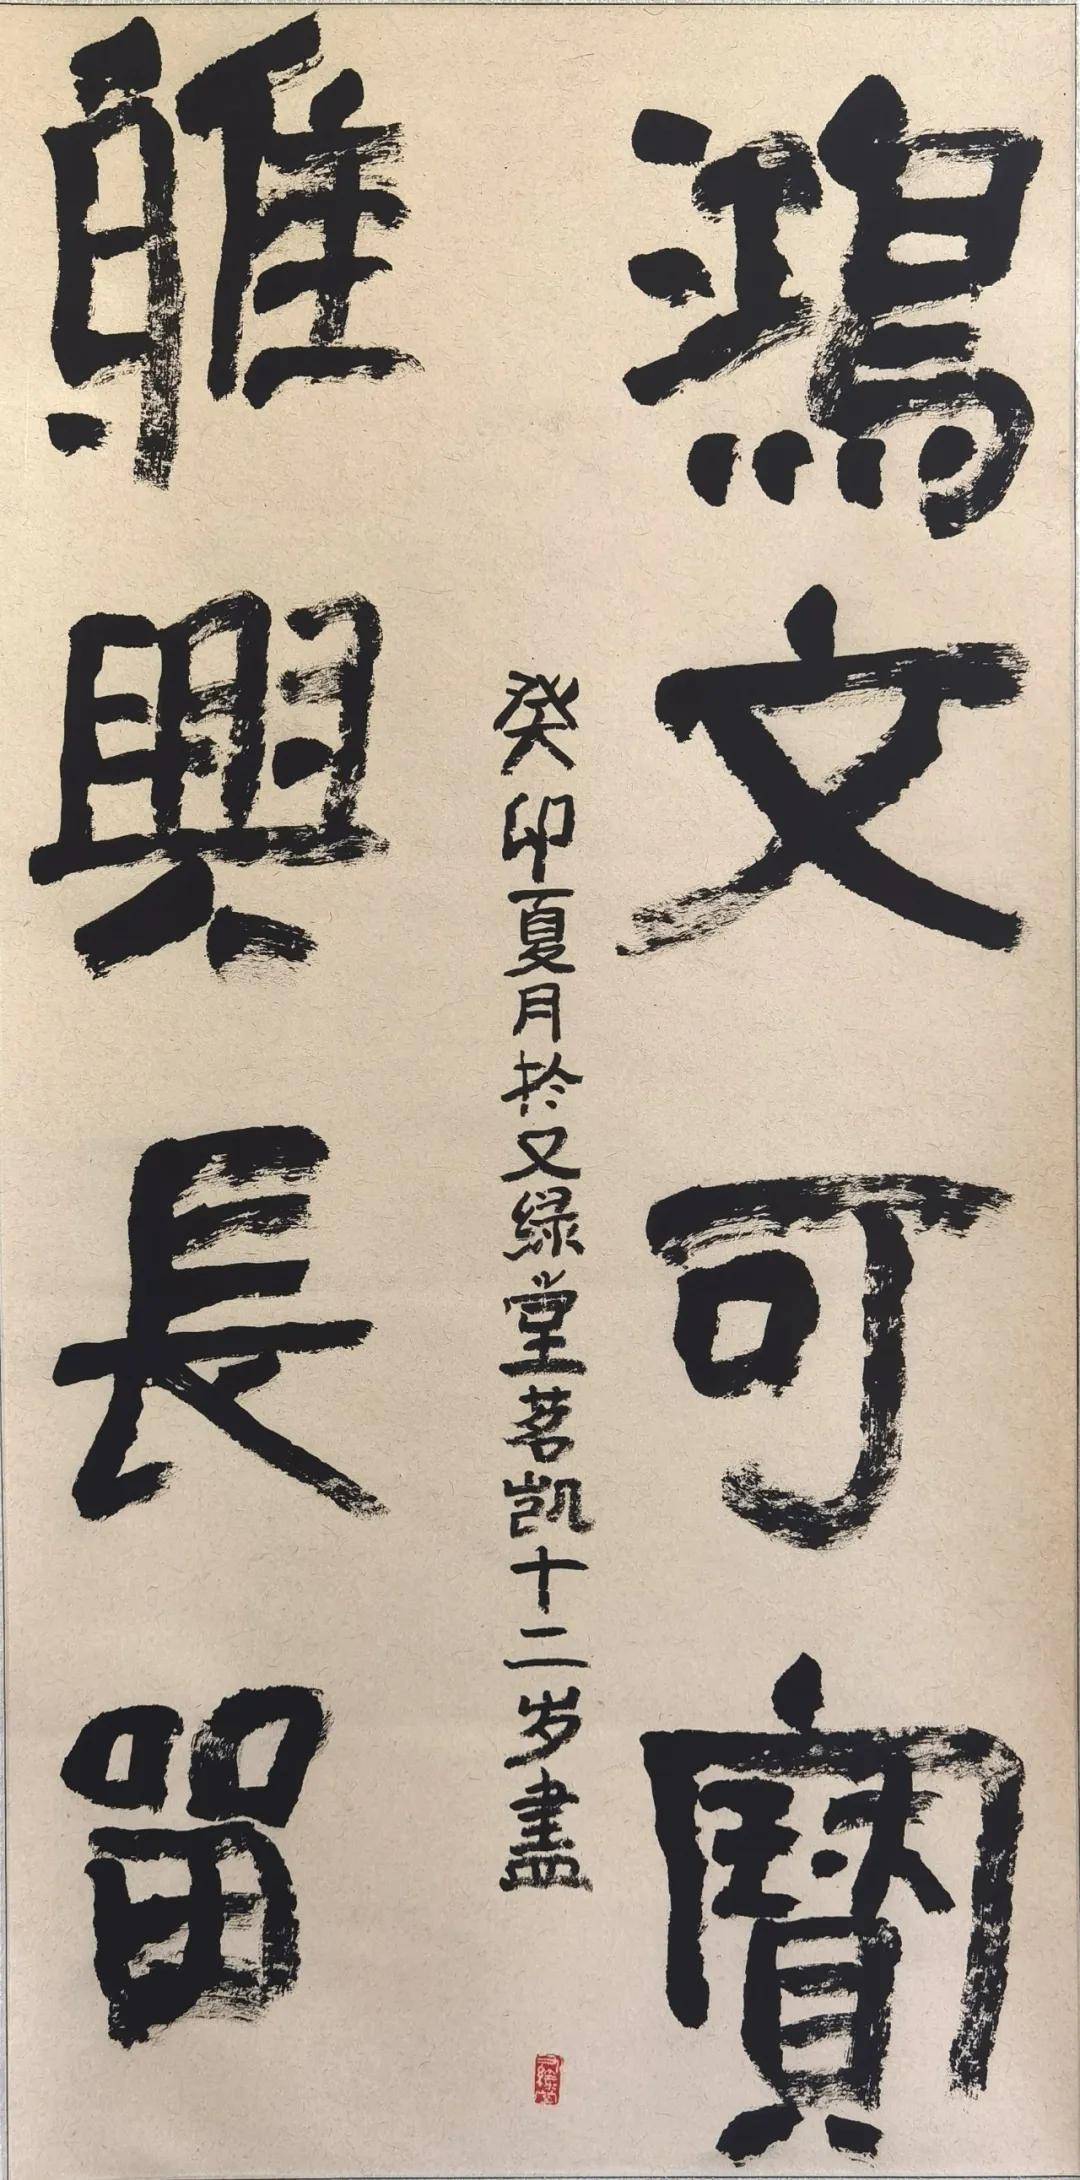 鴻文可寶
雅興長留
癸卯夏月於又綠堂茗凯十二岁盡